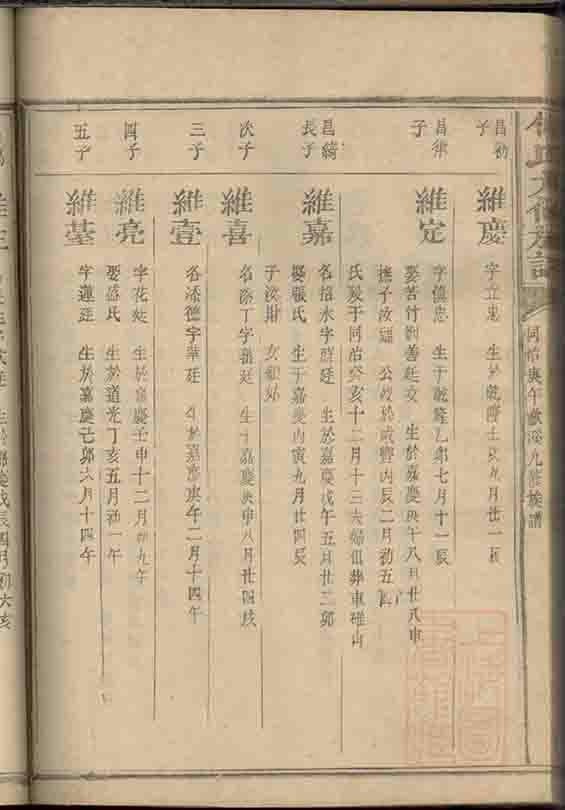 昌初子
維慶
字立忠 生於乾隆 九月廿一辰
昌崇子
維定
字慎忠 生於乾隆乙卯七月十一辰
娶苦竹劉善廷女 生於嘉慶庚午八月廿八申
撫子汝 公歿於咸豐丙辰二月初五
氏歿于同治癸亥十二月十三夫婦俱葬車碓山
昌綺長子
維嘉
名招水字群廷 生於嘉慶戊午五月廿二卯
娶張氏 生于嘉慶丙寅九月廿四辰
子汝 女
次子
維喜
名添丁字 廷 生于嘉慶庚申八月廿四亥
三子
維壹
名添德字華廷 生於嘉慶庚午二月十四午
四子
維亮
字花廷 生於嘉慶壬申十二月初九午
娶盛氏 生於道光丁亥五月初一午
五子
維基
字蓮廷 生於嘉慶己卯六月十四午
氏九修族譜
同治庚午 九修族譜
生於嘉慶戊辰四月初六亥